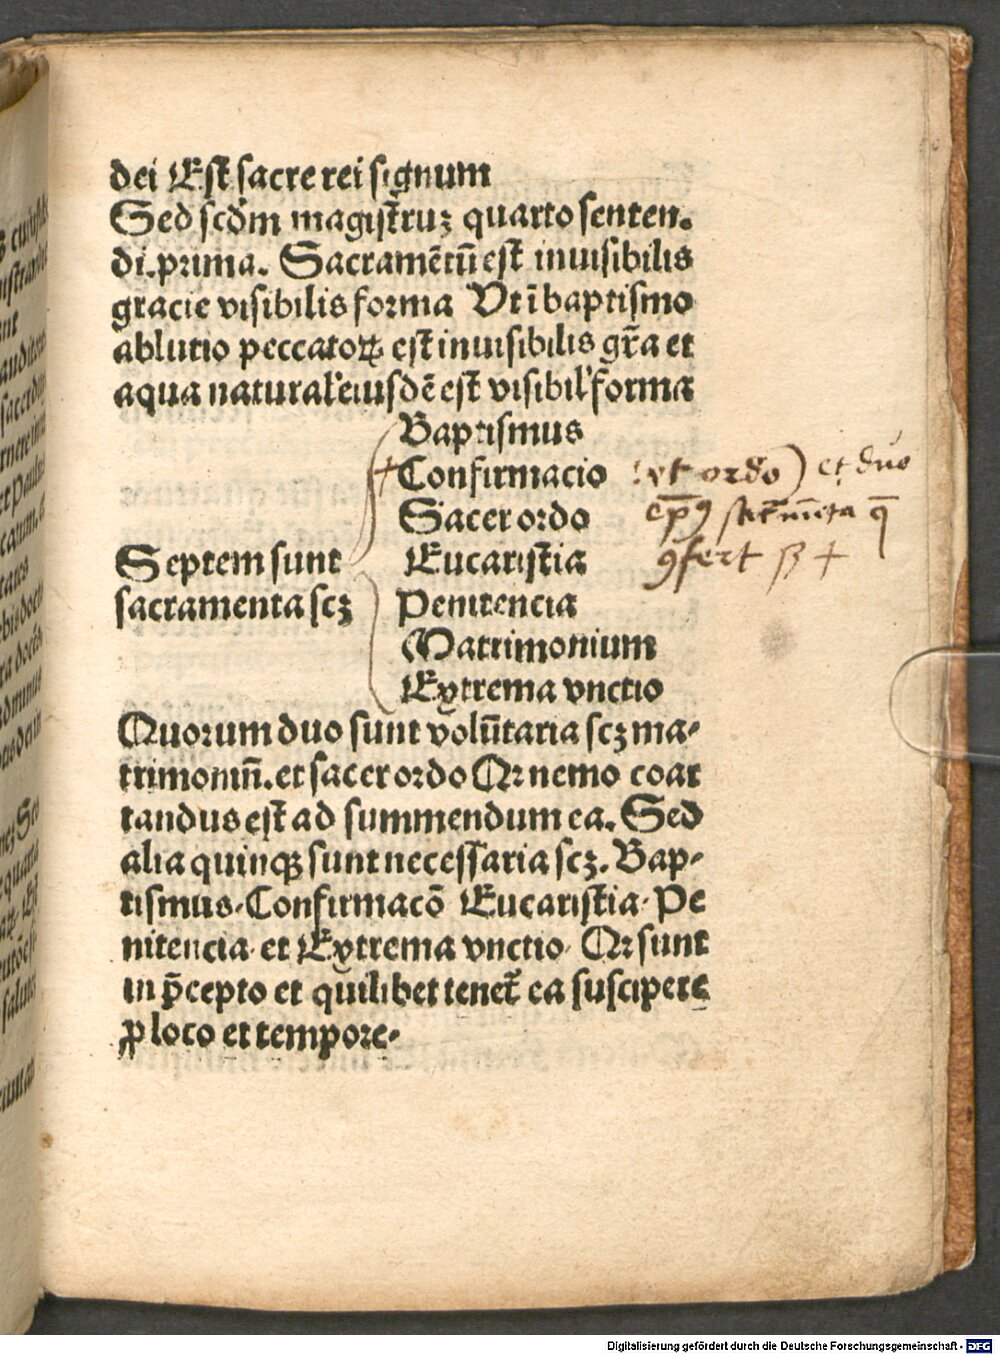 dei Est sacre rei signum
Sed scdm̄ magist̄ruꝫ quarto senten.
di.prima. Sacramētū est inuisibilis
gracie visibilis forma Vt ī baptismo
ablutio peccatoꝝ est inuisibilis gr̄a et
aqua natural' eiusdē est visibil' forma
Baptismus
Confirmacio
Sacer ordo
Septem sunt
Eucaristia
sacramenta scꝫ
Penitencia
Matrimonium
Extrema vnctio
vt ordo) et duo
Quorum duo sunt volūtaria scꝫ ma-
trimoniū. et sacer ordo Qꝛ nemo coar
tandus est ad summendum ea. Sed
alia quinqꝫ sunt necessaria scꝫ. Bap-
tismus. Confirmacō Eucaristia. Pe
nitencia. et Extrema vnctio. Qꝛ sunt
in p̄cepto et quilibet tenet̄ ea suscipere
ꝓ loco et tempore.
Digitalisierung gefördert durch die Deutsche Forschungsgemeinschaft - DFG